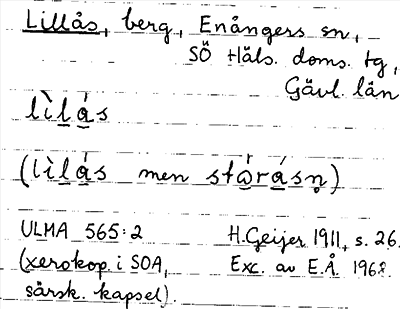 Lillås, berg, Enångers sn,
SÖ Häls. doms. tg,
Gävl. län
lìlạ́s
(lìlạ́s men stọrạ́sṇ)
ULMA 565:2 H. Geijer 1911, s. 26.
(xerokop. i SOA, Exc. av E.Å. 1968.
särsk. kapsel).